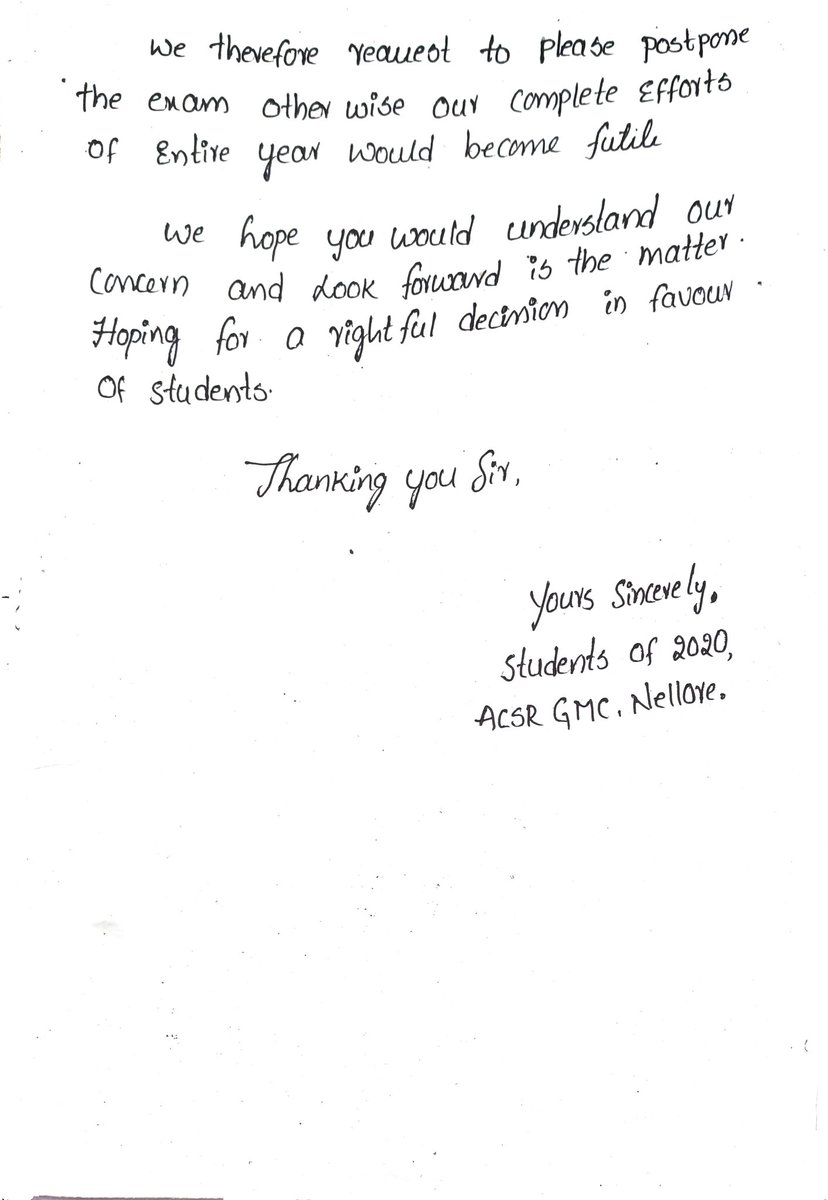 We therefore request to please postpone
the exam other wise our complete Efforts
of Entire year would become futile
We hope you would understand our
Concern and Look forward is the matter.
Hoping for a rightful decision in favour
of students.
Thanking you Sir,
Yours Sincerely,
Students of 2020,
ACSR GMC, Nellore.